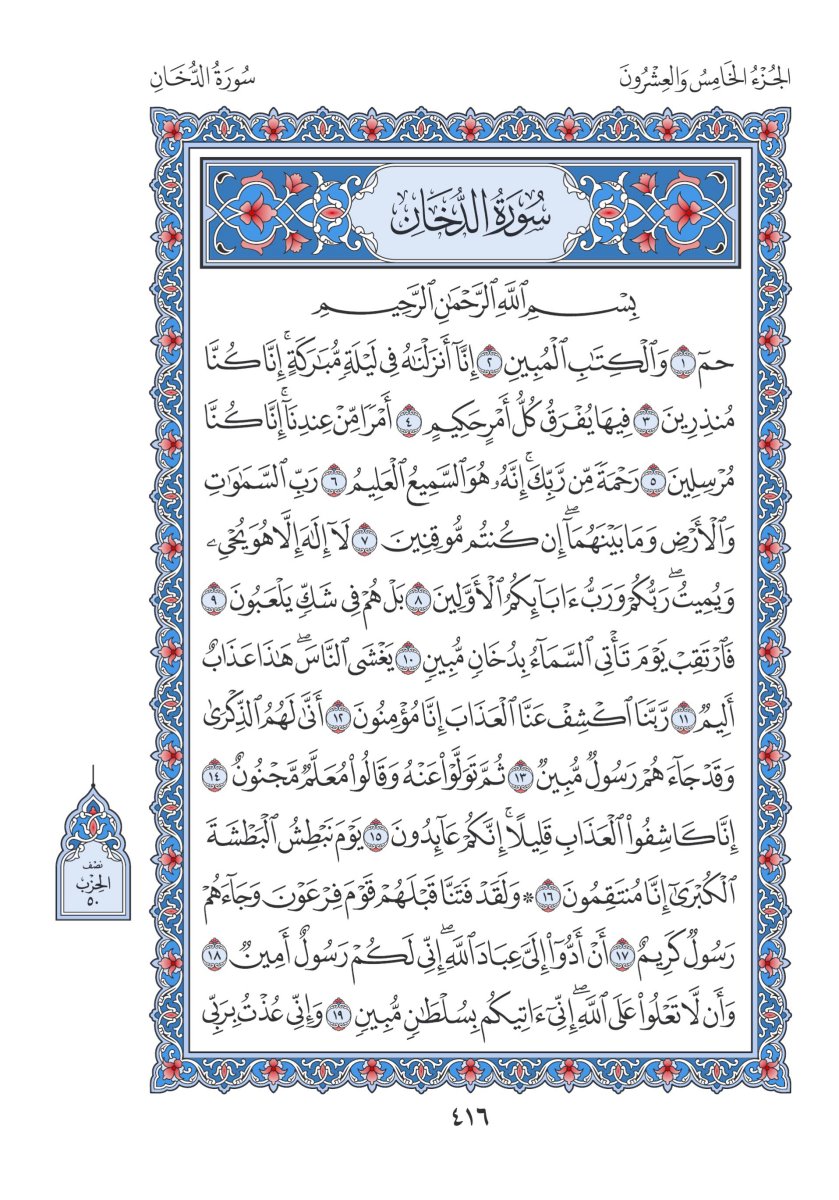 الجُزْءُ الخَامِسُ وَالعِشْرُونَ
سُورَةُ الدُّخَانِ
سُورَةُ الدُّخَانِ
بِسْمِ ٱللَّهِ ٱلرَّحْمَٰنِ ٱلرَّحِيمِ
حمٓ ١ وَٱلْكِتَٰبِ ٱلْمُبِينِ ٢ إِنَّآ أَنزَلْنَٰهُ فِي لَيْلَةٖ مُّبَٰرَكَةٍۚ إِنَّا كُنَّا
مُنذِرِينَ ٣ فِيهَا يُفْرَقُ كُلُّ أَمْرٍ حَكِيمٍ ٤ أَمْرٗا مِّنْ عِندِنَآۚ إِنَّا كُنَّا
مُرْسِلِينَ ٥ رَحْمَةٗ مِّن رَّبِّكَۚ إِنَّهُۥ هُوَ ٱلسَّمِيعُ ٱلْعَلِيمُ ٦ رَبِّ ٱلسَّمَٰوَٰتِ
وَٱلْأَرْضِ وَمَا بَيْنَهُمَآۖ إِن كُنتُم مُّوقِنِينَ ٧ لَآ إِلَٰهَ إِلَّا هُوَ يُحْيِۦ
وَيُمِيتُۖ رَبُّكُمْ وَرَبُّ ءَابَآئِكُمُ ٱلْأَوَّلِينَ ٨ بَلْ هُمْ فِي شَكّٖ يَلْعَبُونَ ٩
فَٱرْتَقِبْ يَوْمَ تَأْتِي ٱلسَّمَآءُ بِدُخَانٖ مُّبِينٖ ١٠ يَغْشَى ٱلنَّاسَۖ هَٰذَا عَذَابٌ
أَلِيمٞ ١١ رَّبَّنَا ٱكْشِفْ عَنَّا ٱلْعَذَابَ إِنَّا مُؤْمِنُونَ ١٢ أَنَّىٰ لَهُمُ ٱلذِّكْرَىٰ
وَقَدْ جَآءَهُمْ رَسُولٞ مُّبِينٞ ١٣ ثُمَّ تَوَلَّوْا۟ عَنْهُ وَقَالُوا۟ مُعَلَّمٞ مَّجْنُونٌ ١٤
إِنَّا كَاشِفُوا۟ ٱلْعَذَابِ قَلِيلًاۚ إِنَّكُمْ عَآئِدُونَ ١٥ يَوْمَ نَبْطِشُ ٱلْبَطْشَةَ
ٱلْكُبْرَىٰٓ إِنَّا مُنتَقِمُونَ ١٦ ۞ وَلَقَدْ فَتَنَّا قَبْلَهُمْ قَوْمَ فِرْعَوْنَ وَجَآءَهُمْ
رَسُولٞ كَرِيمٌ ١٧ أَنْ أَدُّوٓا۟ إِلَيَّ عِبَادَ ٱللَّهِۖ إِنِّي لَكُمْ رَسُولٌ أَمِينٞ ١٨
وَأَن لَّا تَعْلُوا۟ عَلَى ٱللَّهِۖ إِنِّيٓ ءَاتِيكُم بِسُلْطَٰنٖ مُّبِينٖ ١٩ وَإِنِّي عُذْتُ بِرَبِّي
نصف
الحزب
٥٠
٤١٦